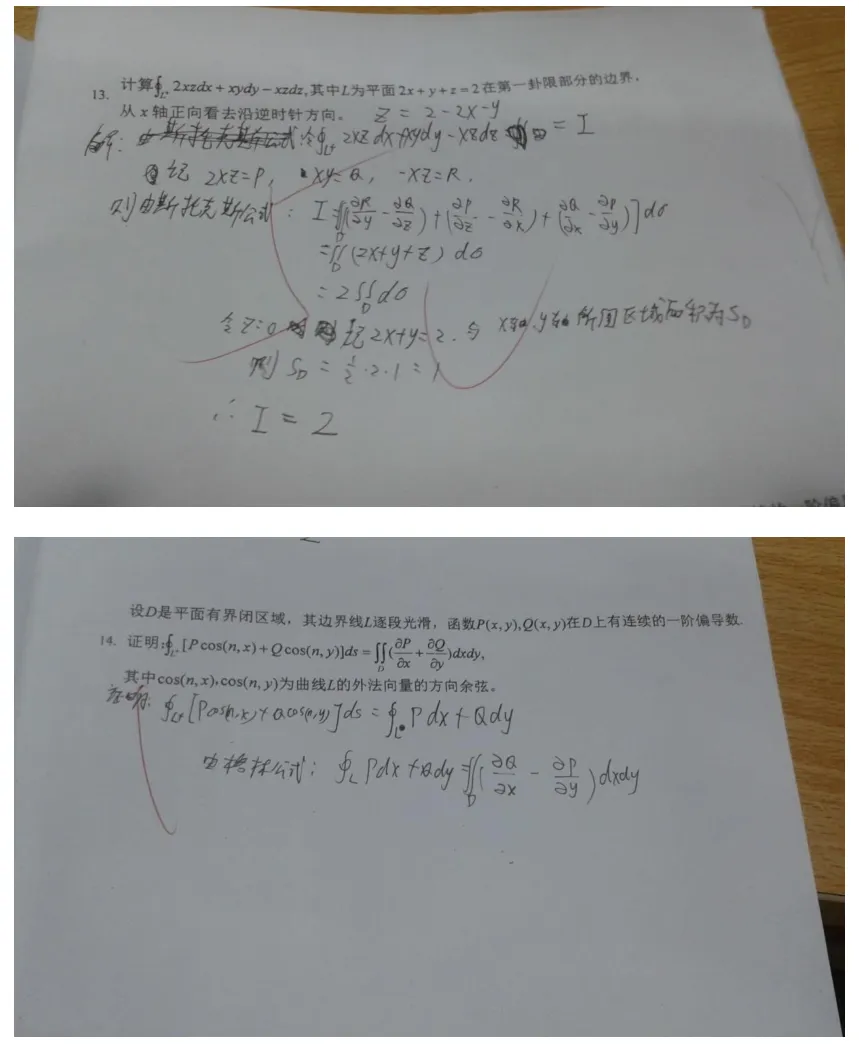 13. 计算∮_{L⁺} 2xzdx + xydy − xzdz,其中L为平面 2x + y + z = 2在第一卦限部分的边界，
从 x 轴正向看去沿逆时针方向。 Z = 2-2X-y
解: 由斯托克斯公式: 令∮_{L⁺} 2XZ dx+xydy-XZdz = I
记 2XZ=P, XY=Q, -XZ=R.
则由斯托克斯公式: I=∬_D[(∂R/∂y - ∂Q/∂z)+(∂P/∂z - ∂R/∂x)+(∂Q/∂x - ∂P/∂y)]dσ
=∬_D(2X+y+Z) dσ
= 2∬_D dσ
令Z=0 记2X+y=2. 与 X轴,y轴所围区域面积为S_D
则 S_D = 1/2·2·1 = 1
∴ I = 2
设D是平面有界闭区域，其边界线L逐段光滑，函数P(x, y),Q(x, y)在D上有连续的一阶偏导数.
14. 证明:∮_{L⁺}[P cos(n, x) + Q cos(n, y)]ds = ∬_D(∂P/∂x + ∂Q/∂y)dxdy,
其中cos(n, x),cos(n, y)为曲线L的外法向量的方向余弦。
证明: ∮_{L⁺}[Pcos(n,x)+Qcos(n,y)]ds = ∮_L Pdx+Qdy
由格林公式: ∮_L Pdx+Qdy=∬_D(∂Q/∂x - ∂P/∂y)dxdy